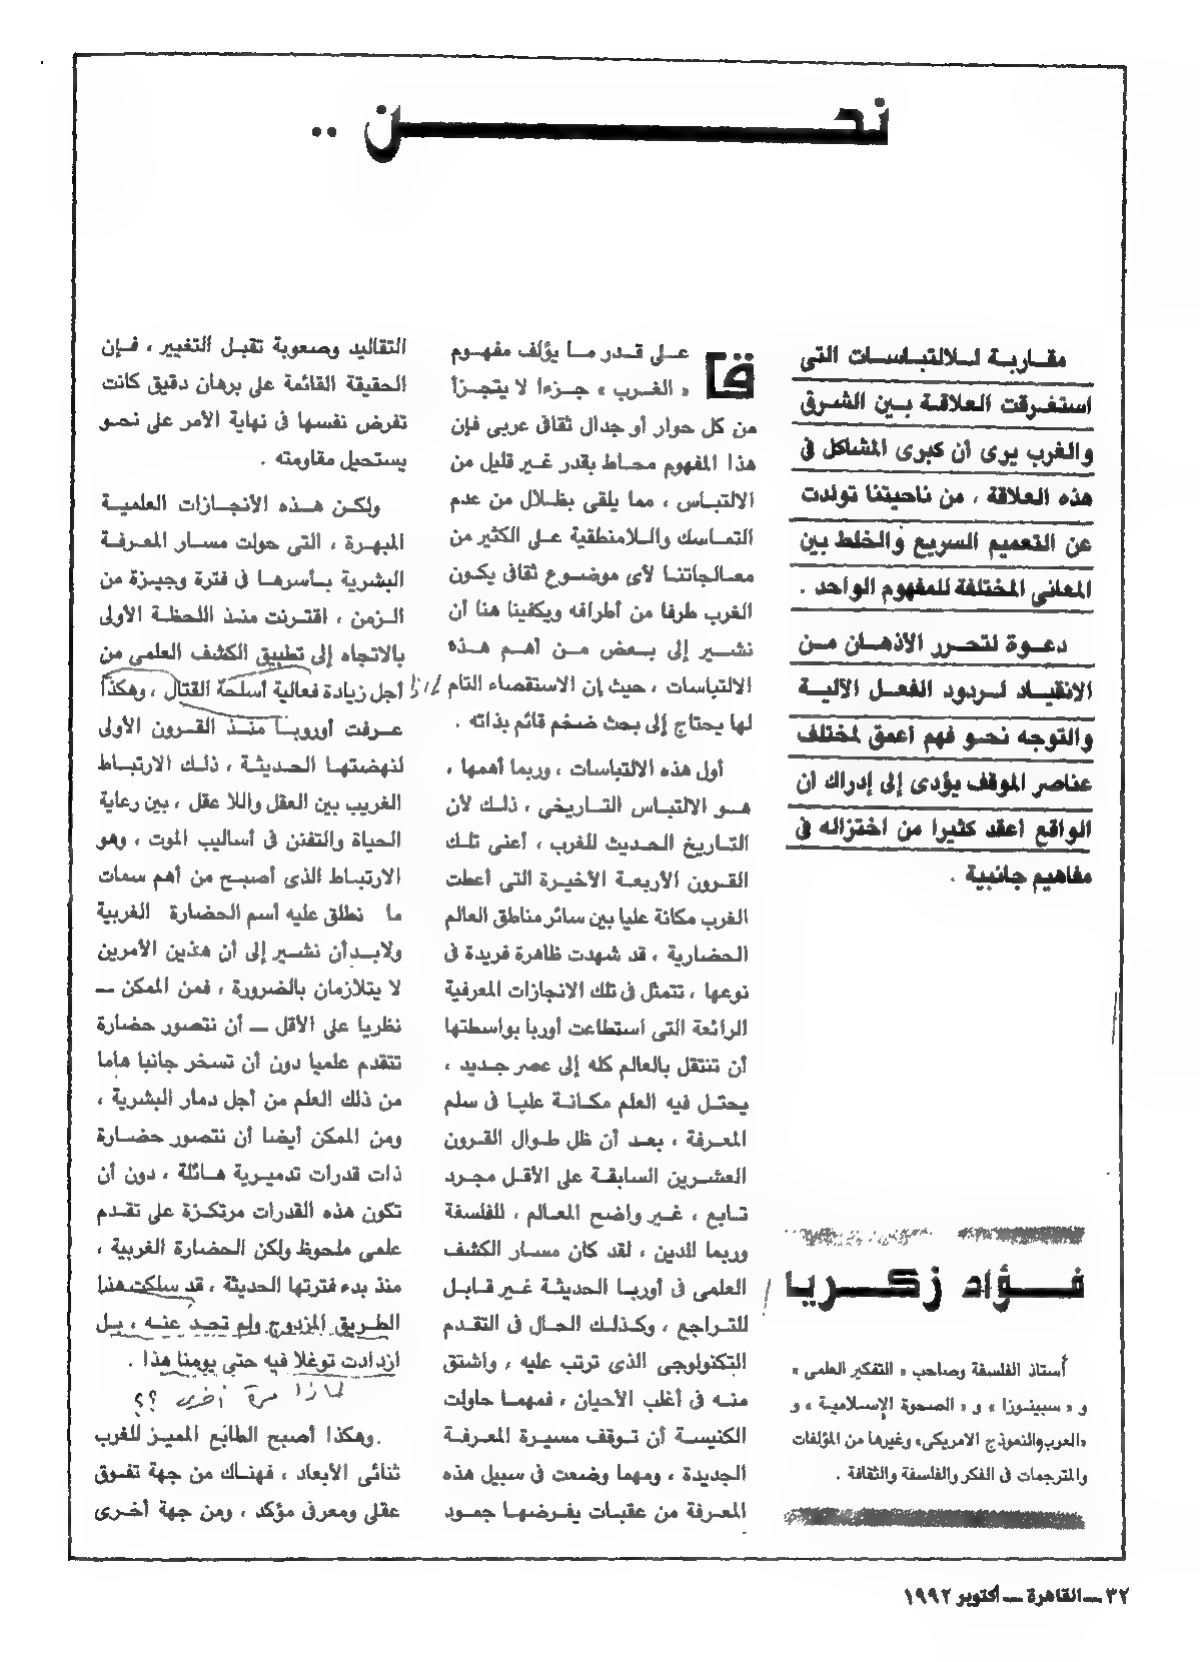 نحـــن ..
مقاربة لـلالتباسات التى
استغرقت العلاقة بين الشرق
والغرب يرى أن كبرى المشاكل فى
هذه العلاقة ، من ناحيتنا تولدت
عن التعميم السريع والخلط بين
المعانى المختلفة للمفهوم الواحد .
دعوة لتحرر الأذهان من
الانقياد لردود الفعل الآلية
والتوجه نحو فهم أعمق لمختلف
عناصر الموقف يؤدى إلى إدراك أن
الواقع أعقد كثيرا من اختزاله فى
مفاهيم جانبية .
فؤاد زكريا
أستاذ الفلسفة وصاحب « التفكير العلمى »
و « سبينوزا » و « الصحوة الإسلامية » و
«العرب والنموذج الامريكى» وغيرها من المؤلفات
والمترجمات فى الفكر والفلسفة والثقافة .
على قدر ما يؤلف مفهوم
« الغرب » جزءا لا يتجزأ
من كل حوار أو جدال ثقافى عربى فإن
هذا المفهوم محاط بقدر غير قليل من
الالتباس ، مما يلقى بظلال من عدم
التماسك واللامنطقية على الكثير من
معالجاتنا لأى موضوع ثقافى يكون
الغرب طرفا من أطرافه ويكفينا هنا أن
نشير إلى بعض من أهم هذه
الالتباسات ، حيث إن الاستقصاء التام
لها يحتاج إلى بحث ضخم قائم بذاته .
أول هذه الالتباسات ، وربما أهمها ،
هو الالتباس التاريخى ، ذلك لأن
التاريخ الحديث للغرب ، أعنى تلك
القرون الأربعة الأخيرة التى أعطت
الغرب مكانة عليا بين سائر مناطق العالم
الحضارية ، قد شهدت ظاهرة فريدة فى
نوعها ، تتمثل فى تلك الانجازات المعرفية
الرائعة التى استطاعت أوربا بواسطتها
أن تنتقل بالعالم كله إلى عصر جديد ،
يحتل فيه العلم مكانة عليا فى سلم
المعرفة ، بعد أن ظل طوال القرون
العشرين السابقة على الأقل مجرد
تابع ، غير واضح المعالم ، للفلسفة
وربما للدين ، لقد كان مسار الكشف
العلمى فى أوربا الحديثة غير قابل
للتراجع ، وكذلك الحال فى التقدم
التكنولوجى الذى ترتب عليه ، واشتق
منه فى أغلب الأحيان ، فمهما حاولت
الكنيسة أن توقف مسيرة المعرفة
الجديدة ، ومهما وضعت فى سبيل هذه
المعرفة من عقبات يفرضها جمود
التقاليد وصعوبة تقبل التغيير ، فإن
الحقيقة القائمة على برهان دقيق كانت
تفرض نفسها فى نهاية الأمر على نحو
يستحيل مقاومته .
ولكن هذه الانجازات العلمية
المبهرة ، التى حولت مسار المعرفة
البشرية بأسرها فى فترة وجيزة من
الزمن ، اقترنت منذ اللحظة الأولى
بالاتجاه إلى تطبيق الكشف العلمى من
أجل زيادة فعالية أسلحة القتال ، وهكذا
عرفت أوروبا منذ القرون الأولى
لنهضتها الحديثة ، ذلك الارتباط
الغريب بين العقل واللا عقل ، بين رعاية
الحياة والتفنن فى أساليب الموت ، وهو
الارتباط الذى أصبح من أهم سمات
ما نطلق عليه أسم الحضارة الغربية
ولابد أن نشير إلى أن هذين الأمرين
لا يتلازمان بالضرورة ، فمن الممكن —
نظريا على الأقل — أن نتصور حضارة
تتقدم علميا دون أن تسخر جانبا هاما
من ذلك العلم من أجل دمار البشرية ،
ومن الممكن أيضا أن نتصور حضارة
ذات قدرات تدميرية هائلة ، دون أن
تكون هذه القدرات مرتكزة على تقدم
علمى ملحوظ ولكن الحضارة الغربية ،
منذ بدء فترتها الحديثة ، قد سلكت هذا
الطريق المزدوج ولم تحد عنه ، بل
ازدادت توغلا فيه حتى يومنا هذا .
لماذا مرة أخرى ؟؟
وهكذا أصبح الطابع المميز للغرب
ثنائى الأبعاد ، فهناك من جهة تفوق
عقلى ومعرفى مؤكد ، ومن جهة أخرى
٣٢ — القاهرة — أكتوبر ١٩٩٢